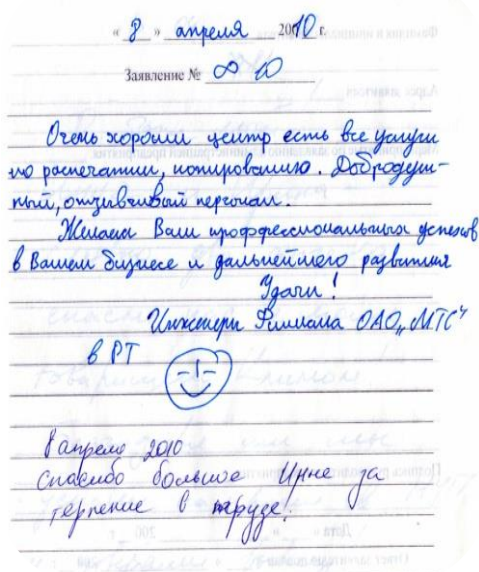 « 8 » апреля 2010 г.
Заявление №
Очень хороший центр есть все услуги
по распечатки, копированию. Добродуш-
ный, отзывчивый персонал.
Желаем Вам профессиональных успехов
в Вашем бизнесе и дальнейшего развития
Удачи!
Инженеры Филиала ОАО „МТС“
в РТ
8 апреля 2010
спасибо большое Ирне за
терпение в труде.